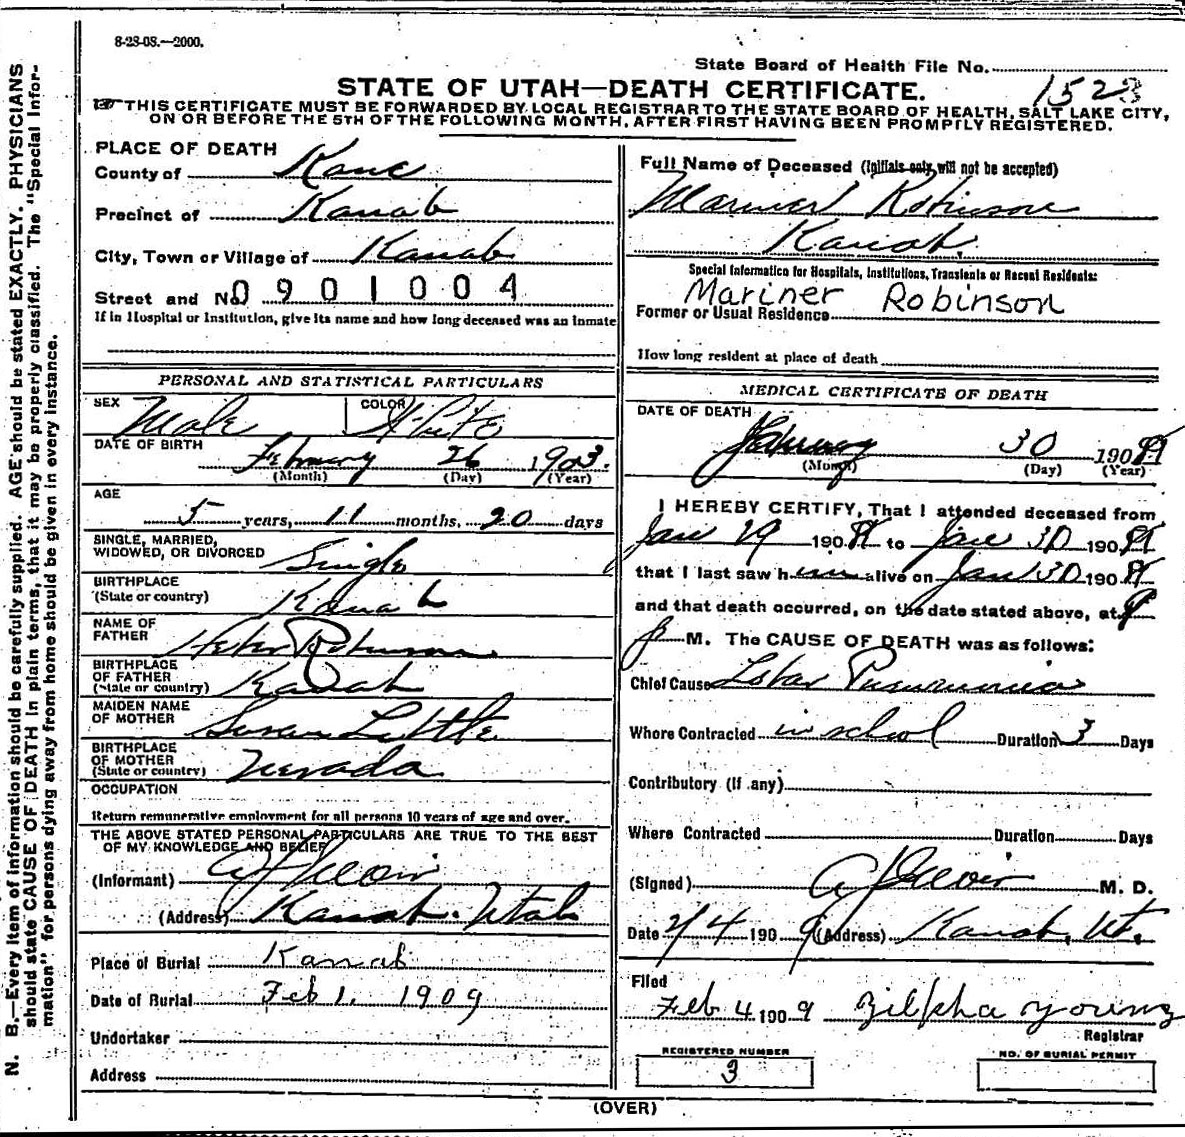 8-28-08.—2000.
State Board of Health File No.
1523
STATE OF UTAH—DEATH CERTIFICATE.
THIS CERTIFICATE MUST BE FORWARDED BY LOCAL REGISTRAR TO THE STATE BOARD OF HEALTH, SALT LAKE CITY,
ON OR BEFORE THE 5TH OF THE FOLLOWING MONTH, AFTER FIRST HAVING BEEN PROMPTLY REGISTERED.
N. B.—Every item of information should be carefully supplied. AGE should be stated EXACTLY. PHYSICIANS
should state CAUSE OF DEATH in plain terms, that it may be properly classified. The "Special Infor-
mation" for persons dying away from home should be given in every instance.
PLACE OF DEATH
County of Kane
Precinct of Kanab
City, Town or Village of Kanab
Street and No. 0901004
If in Hospital or Institution, give its name and how long deceased was an inmate
PERSONAL AND STATISTICAL PARTICULARS
SEX Male COLOR White
DATE OF BIRTH
February 26 1903.
(Month) (Day) (Year)
AGE
5 years, 11 months, 20 days
SINGLE, MARRIED,
WIDOWED, OR DIVORCED Single
BIRTHPLACE
(State or country) Kanab
NAME OF
FATHER Heber Robinson
BIRTHPLACE
OF FATHER
(State or country) Kanab
MAIDEN NAME
OF MOTHER Susan Little
BIRTHPLACE
OF MOTHER
(State or country) Nevada
OCCUPATION
Return remunerative employment for all persons 10 years of age and over.
THE ABOVE STATED PERSONAL PARTICULARS ARE TRUE TO THE BEST
OF MY KNOWLEDGE AND BELIEF
(Informant)
(Address) Kanab. Utah
Place of Burial Kanab
Date of Burial Feb 1. 1909
Undertaker
Address
Full Name of Deceased (Initials only will not be accepted)
Mariner Robinson
Kanab.
Special Information for Hospitals, Institutions, Transients or Recent Residents:
Mariner Robinson
Former or Usual Residence
How long resident at place of death
MEDICAL CERTIFICATE OF DEATH
DATE OF DEATH
30 1909
(Month) (Day) (Year)
I HEREBY CERTIFY, That I attended deceased from
Jan 29 1909 to Jan 30 1909
that I last saw him alive on Jan 30 1909
and that death occurred, on the date stated above, at
M. The CAUSE OF DEATH was as follows:
Chief Cause Lobar Pneumonia
Whore Contracted in school Duration 3 Days
Contributory (if any)
Where Contracted Duration Days
(Signed) M. D.
Date 2/4 1909 (Address) Kanab, Ut.
Filed
Feb 4 1909 Zilpha Young
Registrar
REGISTERED NUMBER
3
NO. OF BURIAL PERMIT
(OVER)